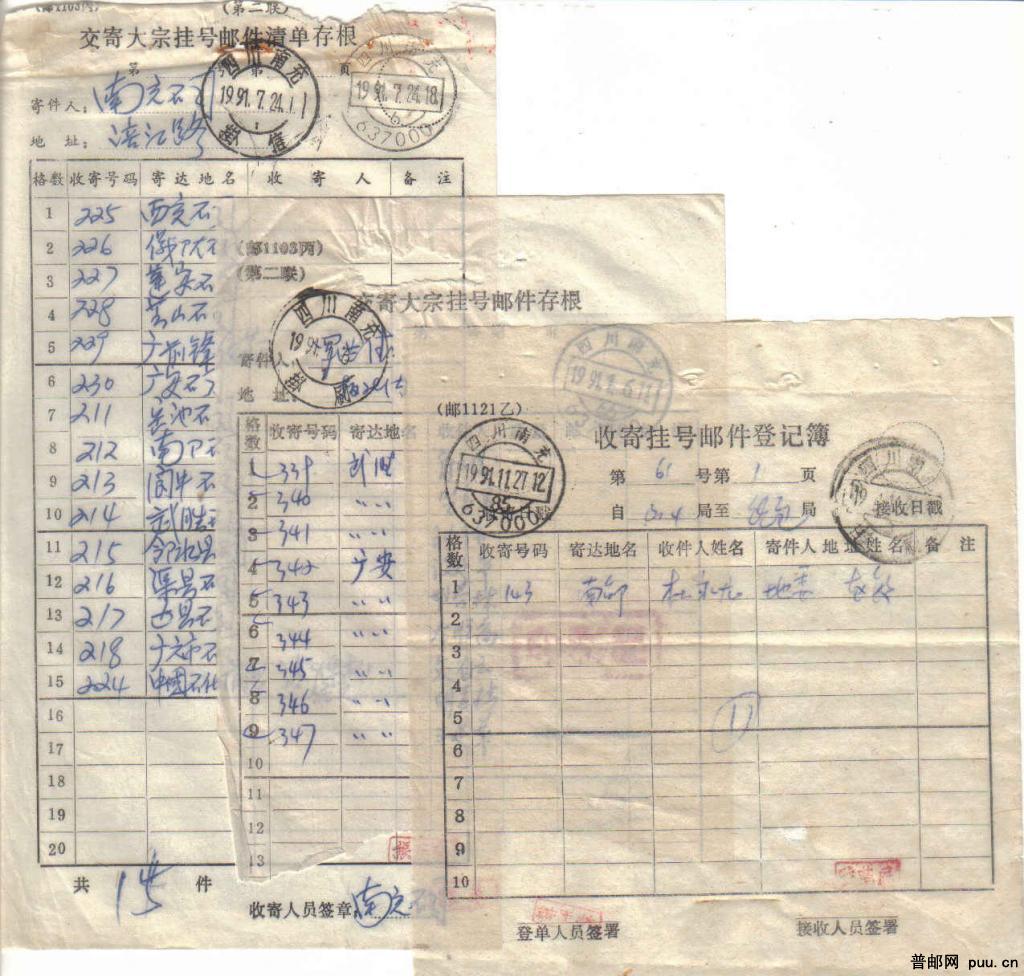 (邮1103丙)
(第二联)
交寄大宗挂号邮件清单存根
第 页
四川南充
1991.7.24.
四川南充
1991.7.24.18
637000
寄件人: 南充石
地 址: 涪江路
格数 收寄号码 寄达地名 收 寄 人 备 注
1 225 西充石
2 226
3 227 蓬安石
4 228 营山石
5 229 广前锋
6 230 广安石
7 211 岳池石
8 212 南 石
9 213 阆中石
10 214 武胜
11 215 邻水县
12 216 渠县石
13 217 达县石
14 218 广元市石
15 224 中国石化
16
17
18
19
20
共 15 件
收寄人员签章: 南充
(邮1103丙)
(第二联)
交寄大宗挂号邮件存根
四川南充
四川南充
寄件人
地 址:
格数 收寄号码 寄达地名
1 339 武胜
2 340 〃
3 341 〃
4 342 广安
5 343 〃
6 344 〃
7 345 〃
8 346 〃
9 347 〃
10
11
12
13
(邮1121乙)
收寄挂号邮件登记簿
四川南充
1991.11.27.12
637000
第 61 号第 1 页
自 局至 局
接收日戳
格数 收寄号码 寄达地名 收件人姓名 寄件人地址姓名 备 注
1 143 南部 杜 地委
2
3
4
5
6
7
8
9
10
登单人员签署
接收人员签署
普邮网 puu.cn